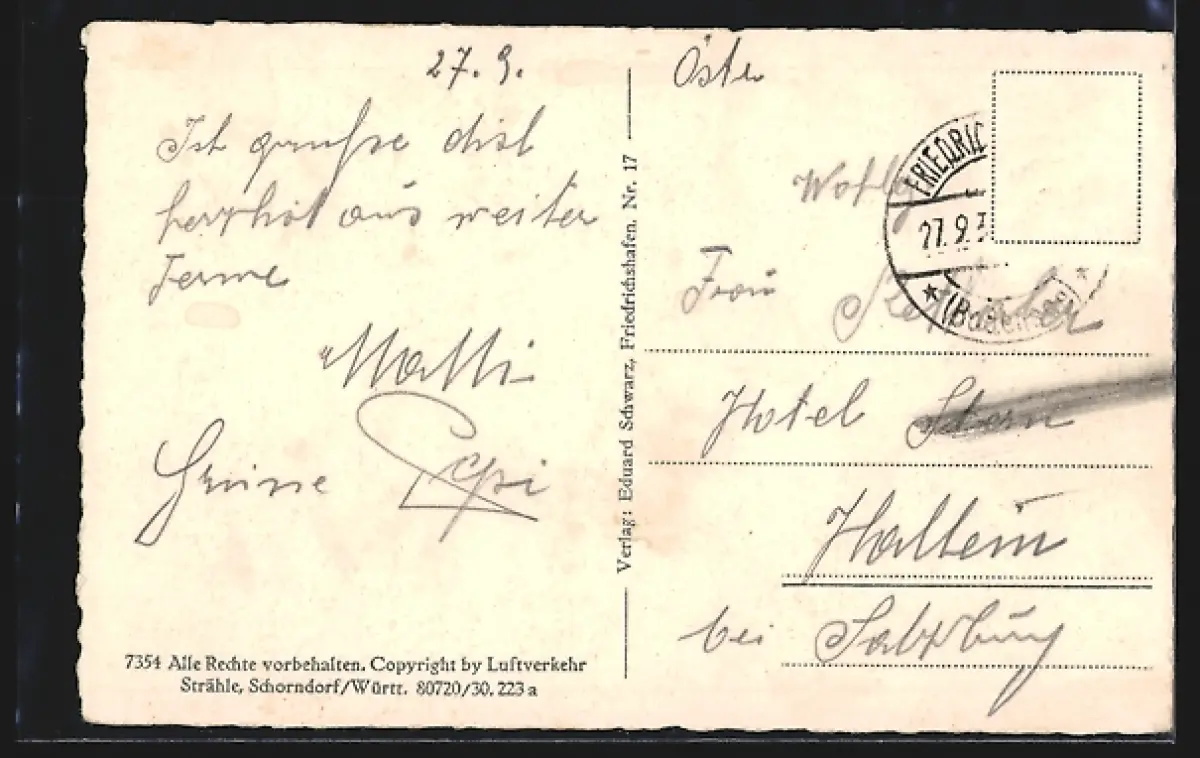 27. 9.
Ich grüße dich
herzlich aus weiter
Ferne
Malli
Pepi
7354 Alle Rechte vorbehalten. Copyright by Luftverkehr
Strähle, Schorndorf/Württ. 80720/30. 223 a
Verlag: Eduard Schwarz, Friedrichshafen. Nr. 17
Öster
FRIEDRIC
27.9.3
(Bodensee)
Wohlg
Frau
Hotel Stern
Hallein
bei Salzburg